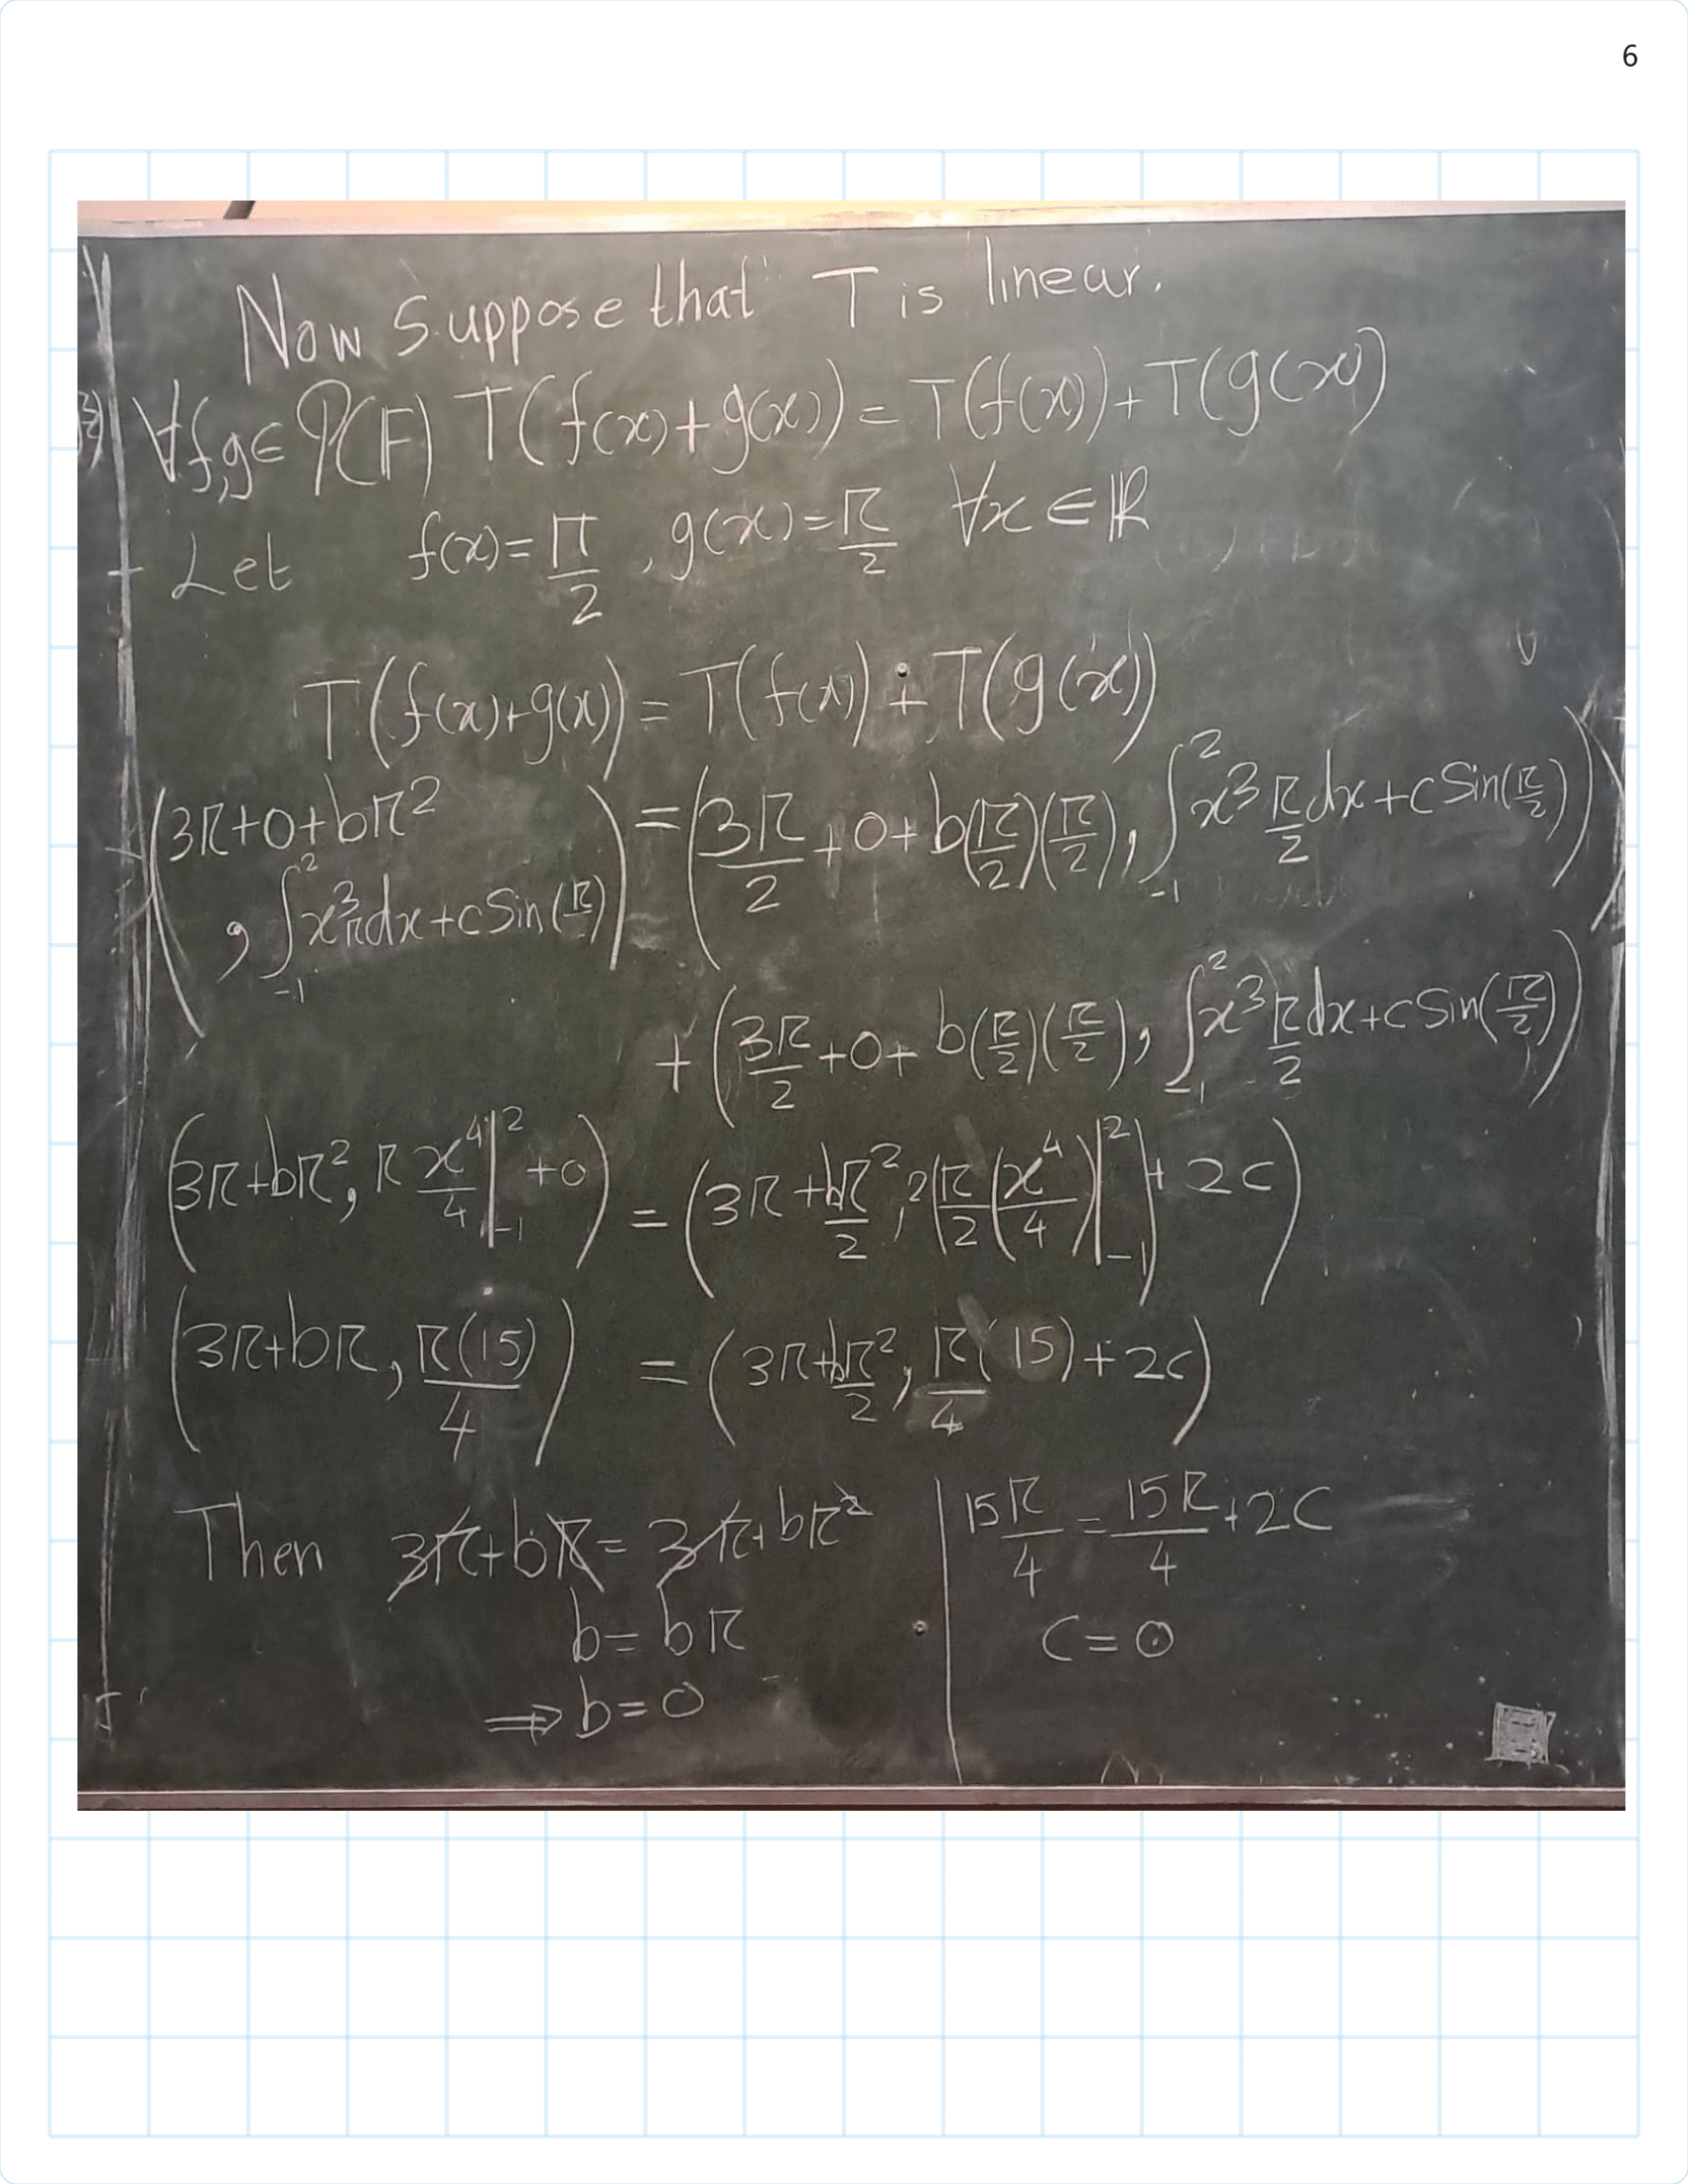 6
Now suppose that T is linear.
∀f,g∈ P(F) T(f(x)+g(x)) = T(f(x)) + T(g(x))
Let f(x)=π/2 , g(x)=π/2 ∀x∈ℝ
T(f(x)+g(x)) = T(f(x)) + T(g(x))
(3π+0+bπ² = (3π/2 +0+ b(π/2)(π/2), ∫_{-1}^{2} x³ π/2 dx + c Sin(π/2))
, ∫_{-1}^{2} x³π dx + c Sin(π))
+ (3π/2 +0+ b(π/2)(π/2), ∫_{-1}^{2} x³ π/2 dx + c Sin(π/2))
(3π+bπ², π x⁴/4 |_{-1}^{2} +0) = (3π + bπ²/2, 2(π/2 (x⁴/4)|_{-1}^{2}) + 2c)
(3π+bπ, π(15)/4) = (3π+bπ²/2, π/4 (15) + 2c)
Then 3π+bπ = 3π+bπ² | 15π/4 = 15π/4 + 2c
b = bπ c = 0
⟹ b = 0